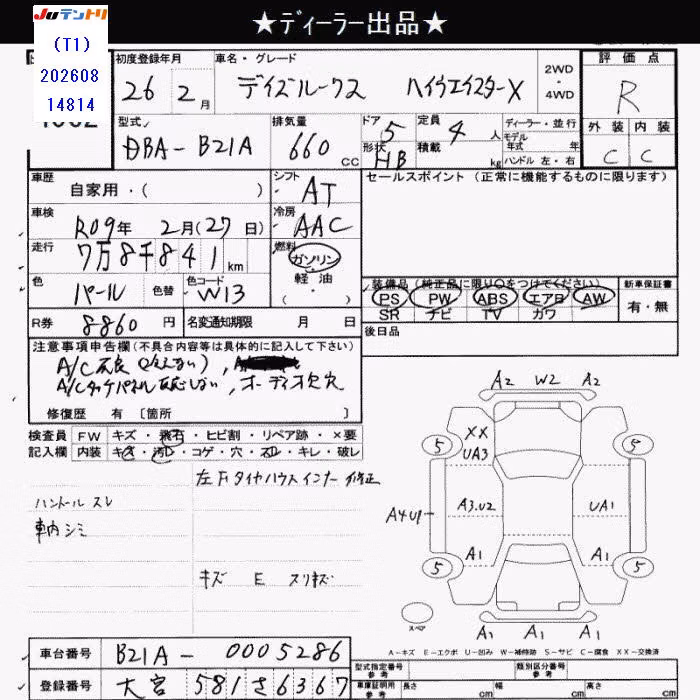 ★ディーラー出品★
JUテントリ
(T1)
202608
14814
初度登録年月
26 2月
車名・グレード
デイズルークス ハイウエイスターX
2WD・4WD
評価点
R
外装 内装
C C
型式
DBA-B21A
排気量
660 CC
ドア 5
形状 HB
定員 4人
積載 kg
ディーラー・並行
モデル
年式 年
ハンドル 左・右
車歴
自家用・( )
シフト AT
セールスポイント(正常に機能するものに限ります)
車検
R09年 2月(27日)
冷房 AAC
走行
7万8千841km
燃料
ガソリン
軽油
( )
色
パール 色替
色コード
W13
装備品(純正品に限り○をつけてください)
PS PW ABS エアB AW
SR ナビ TV カワ
新車保証書
有・無
R券 8860円 名変通知期限 月 日
後日品
注意事項申告欄(不具合内容等は具体的に記入して下さい)
A/C不良(冷えない),
A/Cタッチパネル反応しない,オーディオ欠穴
修復歴 有 [箇所 ]
検査員 FW キズ・飛石・ヒビ割・リペア跡・×要
記入欄 内装 キズ・汚レ・コゲ・穴・スレ・キレ・破レ
左Fタイヤハウスインナー修正
ハンドルスレ
車内シミ
キズ E スリキズ
A2 W2 A2
5 XX 5
UA3
A4U1 A3.U2 UA1
A1 A1
5 5
スペア
A2 A1 A1
A-キズ E-エクボ U-凹み W-補修跡 S-サビ C-腐食 XX-交換済
車台番号 B21A-0005286
登録番号 大宮 581 さ 6367
型式指定番号 参考
類別区分番号 参考
車庫証明用 参考 長さ cm 幅 cm 高さ cm